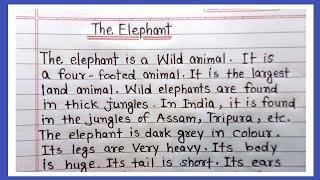 The Elephant
The elephant is a Wild animal. It is
a four-footed animal. It is the largest
land animal. Wild elephants are found
in thick jungles. In India, it is found
in the jungles of Assam, Tripura, etc.
The elephant is dark grey in colour.
Its legs are Very heavy. Its body
is huge. Its tail is short. Its ears